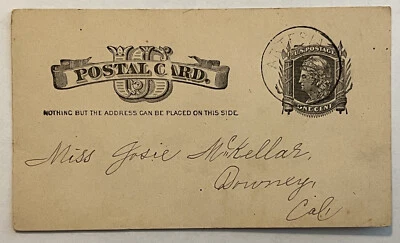 US
POSTAL CARD.
U.S. POSTAGE
ONE CENT
NOTHING BUT THE ADDRESS CAN BE PLACED ON THIS SIDE.
Miss Josie McKellar,
Downey,
Cal.